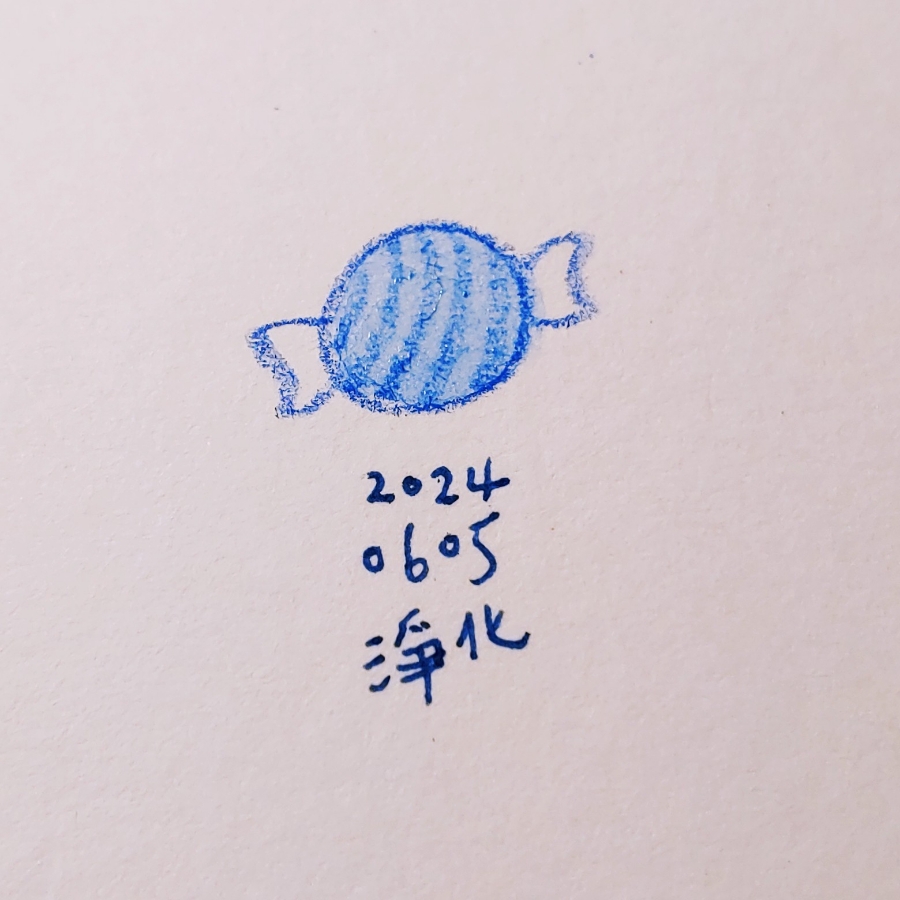 2024
0605
淨化